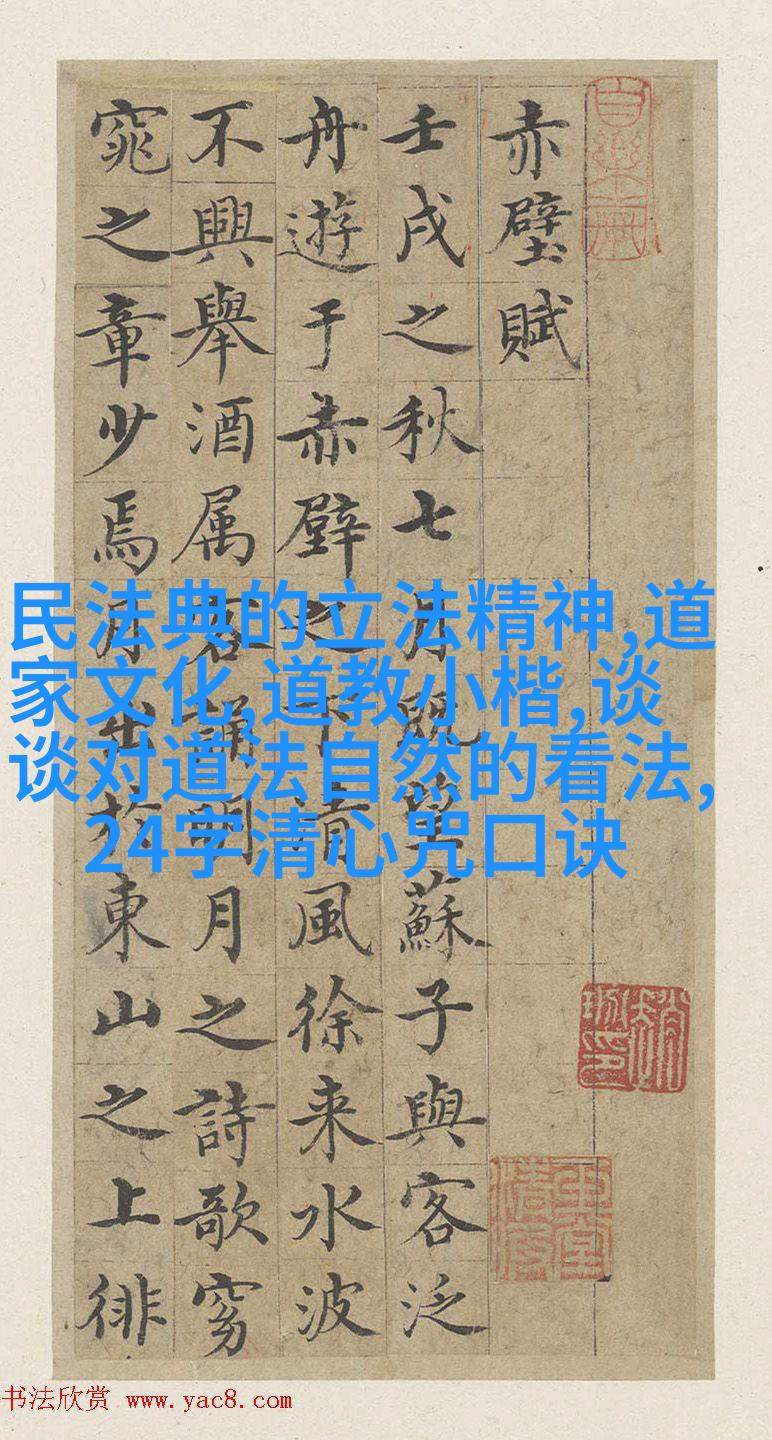 赤壁賦
壬戌之秋七月既望蘇子與客泛
舟遊于赤壁之下清風徐来水波
不興舉酒属客誦明月之詩歌窈
窕之章少焉月出於東山之上徘
民法典的立法精神,道
家文化,道教小楷,谈
谈对道法自然的看法,
24字清心咒口诀
书法欣赏 www.yac8.com